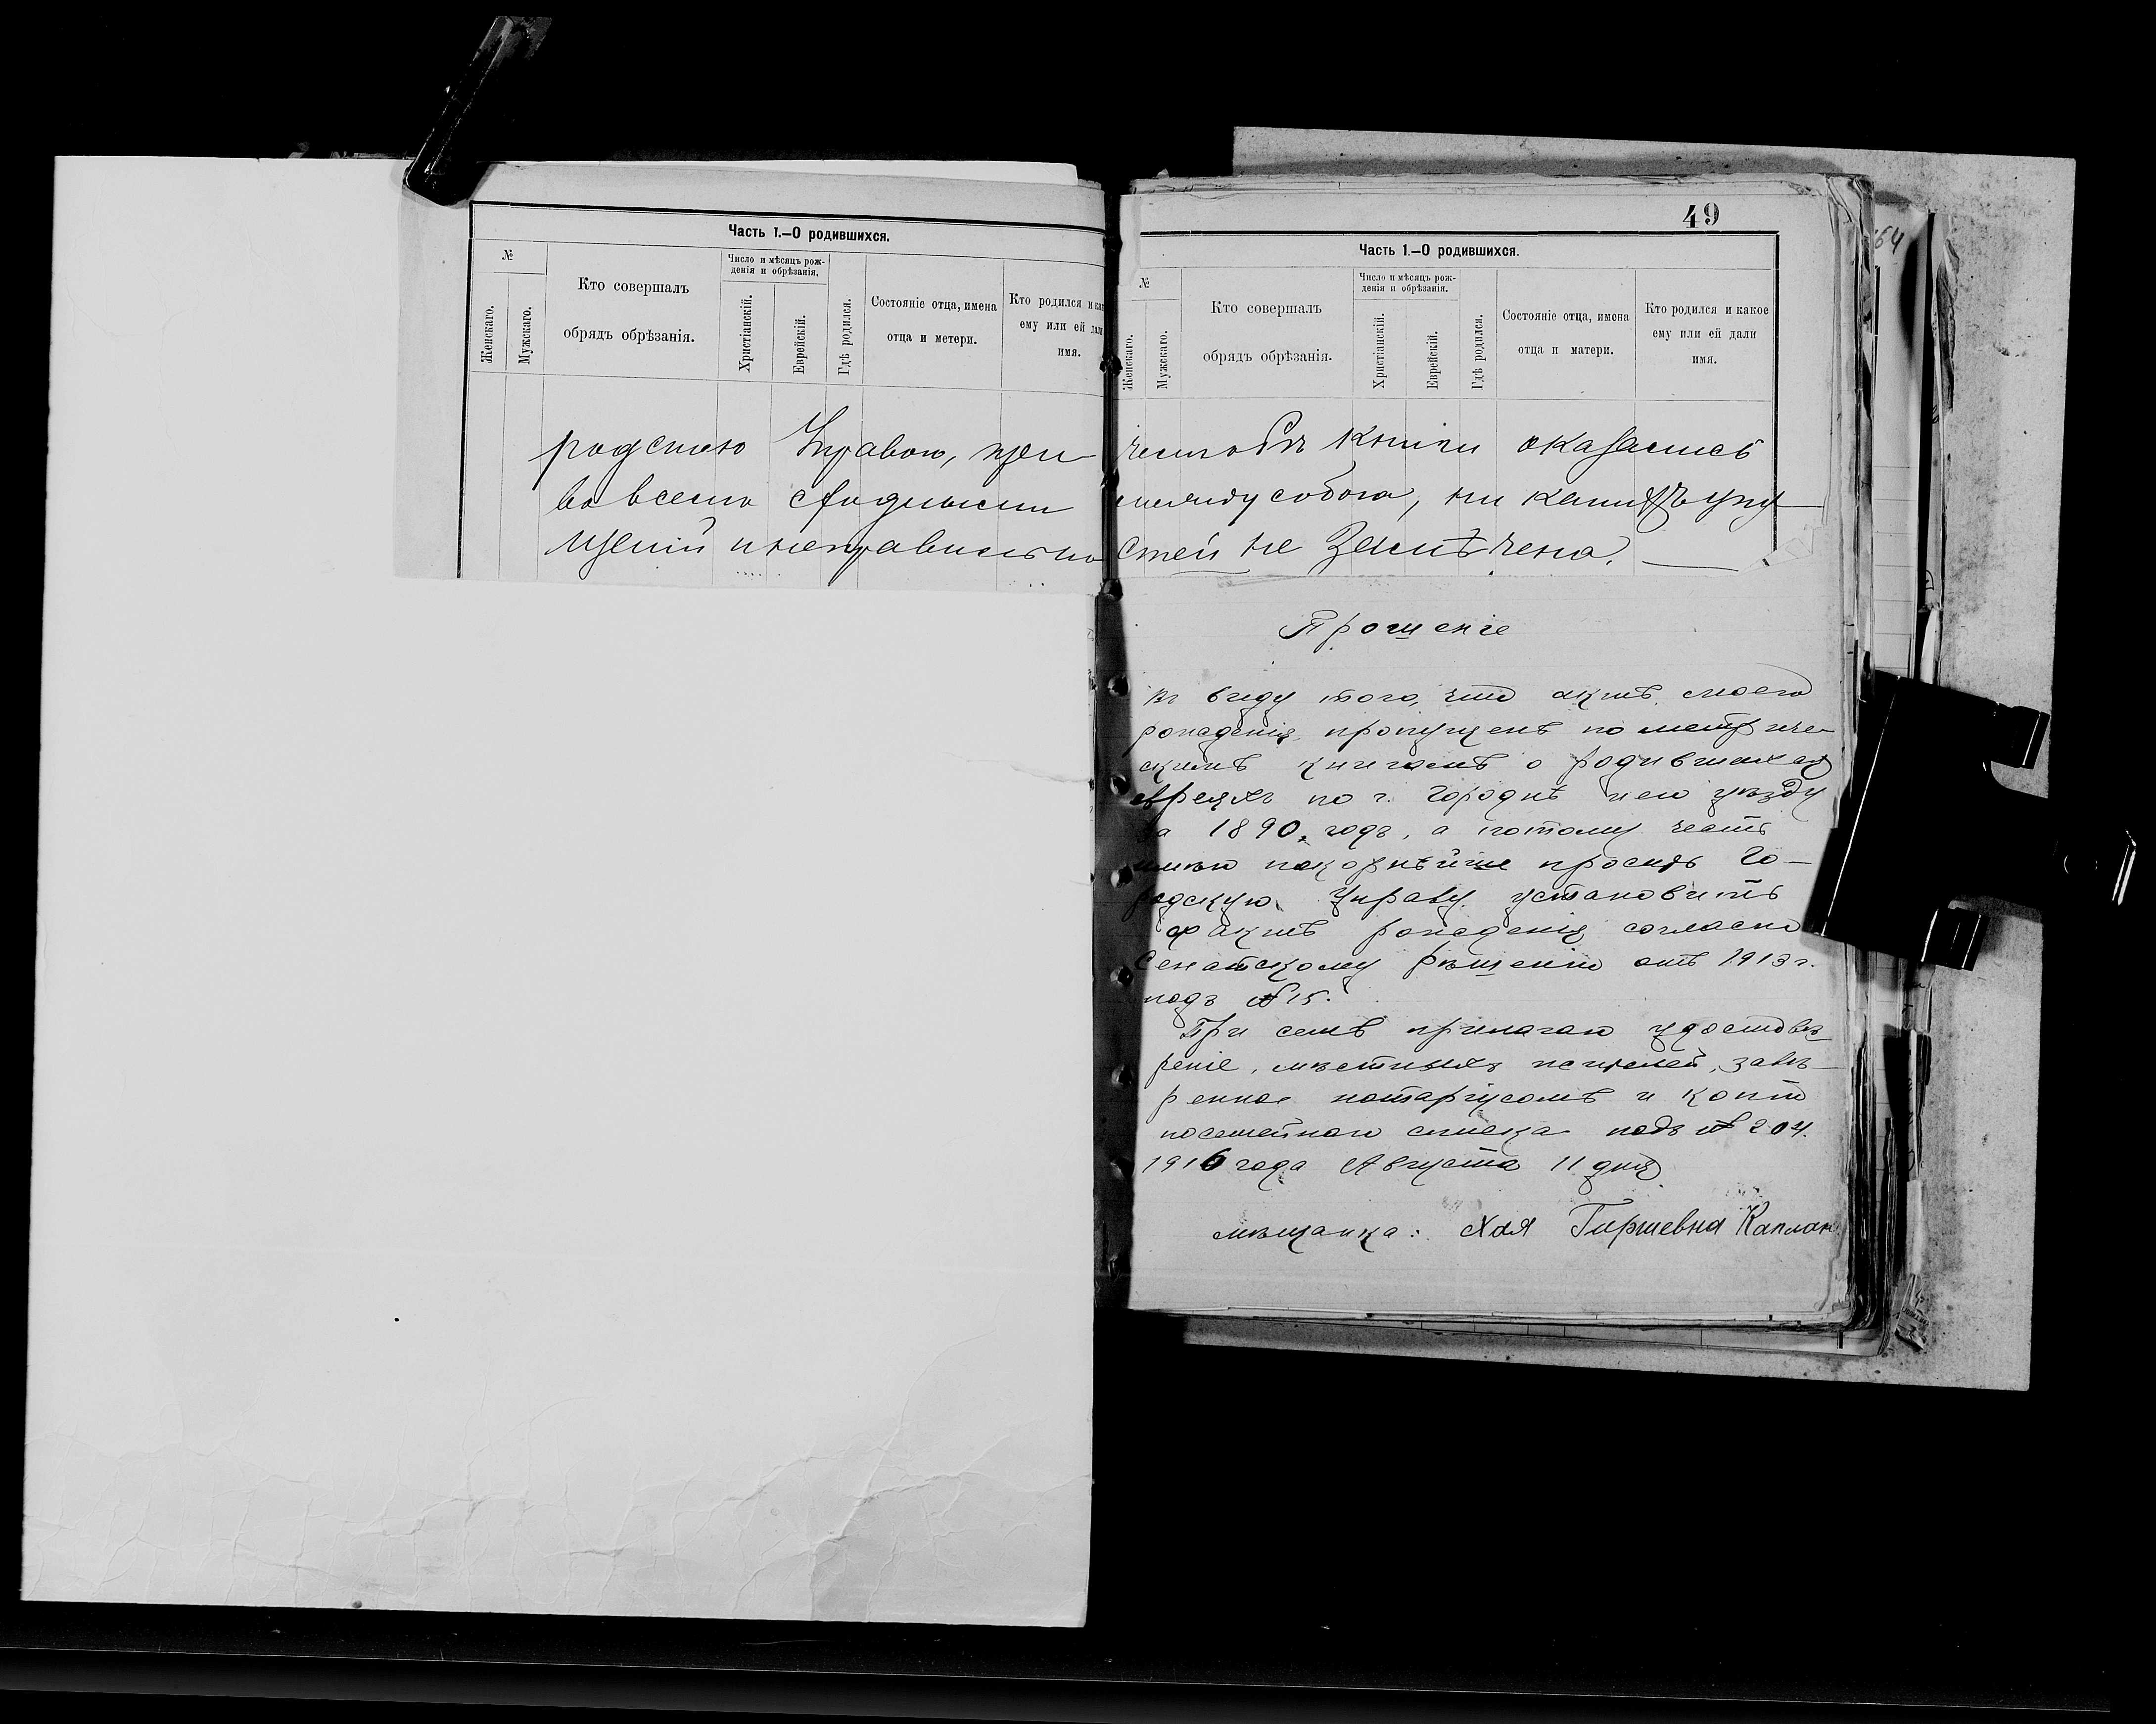 49
64
Часть 1.—О родившихся.
№
Женскаго.
Мужскаго.
Кто совершалъ
обрядъ обрѣзанія.
Число и мѣсяцъ рож-
денія и обрѣзанія.
Христіанскій.
Еврейскій.
Гдѣ родился.
Состояніе отца, имена
отца и метери.
Кто родился и как
ему или ей дали
имя.
Часть 1.—О родившихся.
№
Женскаго.
Мужскаго.
Кто совершалъ
обрядъ обрѣзанія.
Число и мѣсяцъ рож-
денія и обрѣзанія.
Христіанскій.
Еврейскій.
Гдѣ родился.
Состояніе отца, имена
отца и матери.
Кто родился и какое
ему или ей дали
имя.
родскою Управою, при чемъ обѣ книги оказались
во всемъ сходными между собою, ни какихъ упу
щеній и неправильностей не замѣчено.
Прошеніе
Въ виду того, что актъ моего
рожденія пропущенъ по метриче-
скимъ книгамъ о родившихся
евреяхъ по г. Городнѣ и его уѣзду
за 1890 годъ, а потому честь
имѣю покорнѣйше просить Го-
родскую Управу установить
фактъ рожденія согласно
Сенатскому рѣшенію отъ 1913 г.
подъ № 15.
При семъ прилагаю удостовѣ-
реніе, мѣстныхъ жителей, завѣ-
ренное нотаріусомъ и копію
посемейнаго списка подъ № 204.
1916 года Августа 11 дня
мѣщанка: Хая Гиршевна Каплан